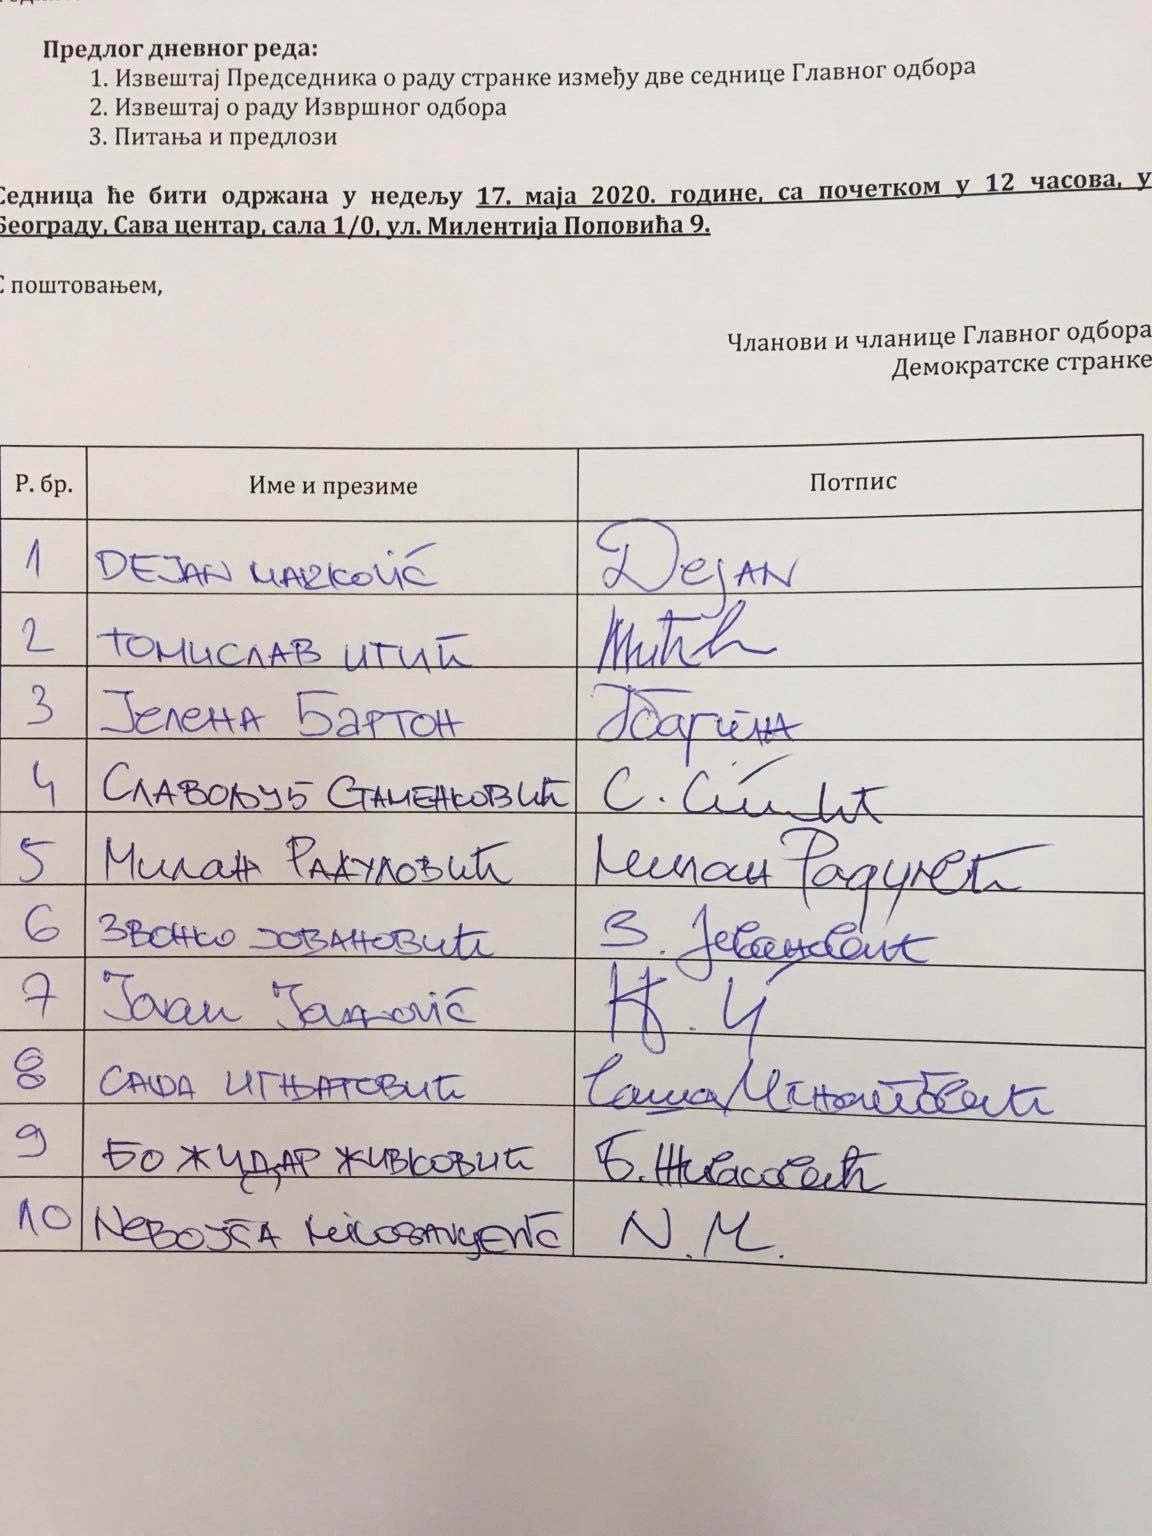 Предлог дневног реда:
1. Извештај Председника о раду странке између две седнице Главног одбора
2. Извештај о раду Извршног одбора
3. Питања и предлози
Седница ће бити одржана у недељу 17. маја 2020. године, са почетком у 12 часова, у
Београду, Сава центар, сала 1/0, ул. Милентија Поповића 9.
С поштовањем,
Чланови и чланице Главног одбора
Демократске странке
Р. бр. Име и презиме Потпис
1 DEJAN MARKOVIĆ Dejan
2 ТОМИСЛАВ ИТИЋ
3 Јелена Бартон
4 СЛАВОЉУБ СТАМЕНКОВИЋ С.
5 Милан Радуловић Милан
6 ЗВОНКО ЈОВАНОВИЋ З. Јовановић
7 Jovan
8 САША ИГЊАТОВИЋ Саша Игњатовић
9 БОЖИДАР ЖИВКОВИЋ Б. Живковић
10 NEBOJŠA N. M.